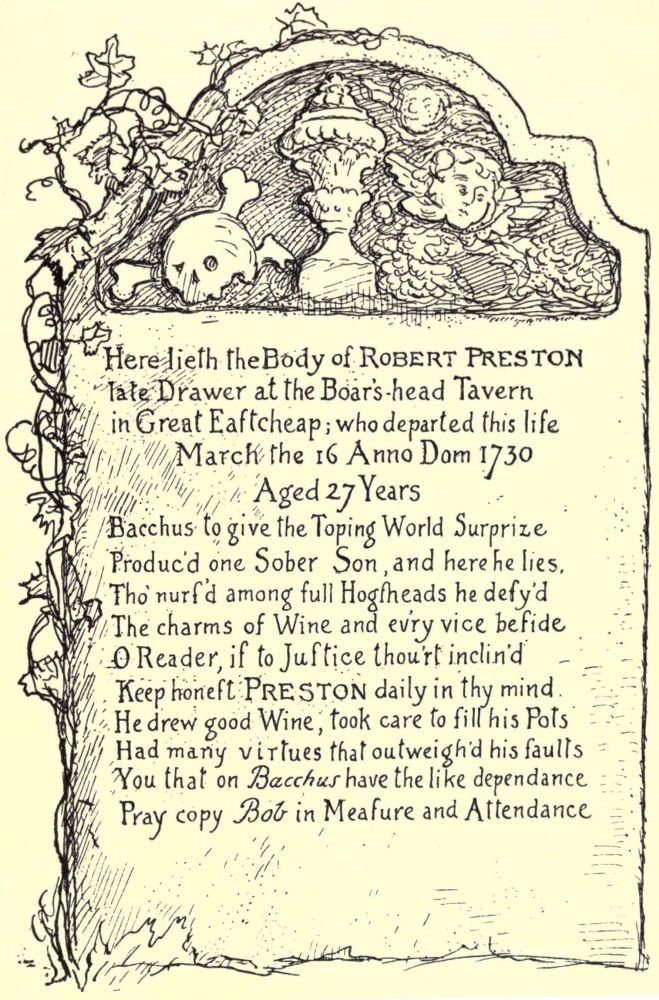 Here lieth the Body of ROBERT PRESTON
late Drawer at the Boar's-head Tavern
in Great Eaſtcheap; who departed this life
March the 16 Anno Dom 1730
Aged 27 Years
Bacchus to give the Toping World Surprize
Produc'd one Sober Son, and here he lies.
Tho' nurſ'd among full Hogſheads he defy'd
The charms of Wine and ev'ry vice beſide
O Reader, if to Juſtice thou'rt inclin'd
Keep honeſt PRESTON daily in thy mind.
He drew good Wine, took care to fill his Pots
Had many virtues that outweigh'd his faults
You that on Bacchus have the like dependance
Pray copy Bob in Meaſure and Attendance